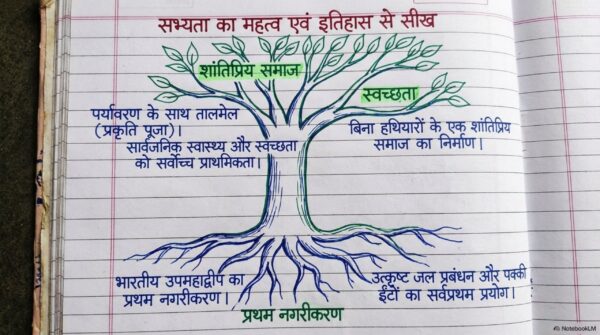 सभ्यता का महत्व एवं इतिहास से सीख
शांतिप्रिय समाज
स्वच्छता
पर्यावरण के साथ तालमेल
(प्रकृति पूजा)।
सार्वजनिक स्वास्थ्य और स्वच्छता
को सर्वोच्च प्राथमिकता।
बिना हथियारों के एक शांतिप्रिय
समाज का निर्माण।
भारतीय उपमहाद्वीप का
प्रथम नगरीकरण।
उत्कृष्ट जल प्रबंधन और पक्की
ईंटों का सर्वप्रथम प्रयोग।
प्रथम नगरीकरण
NotebookLM